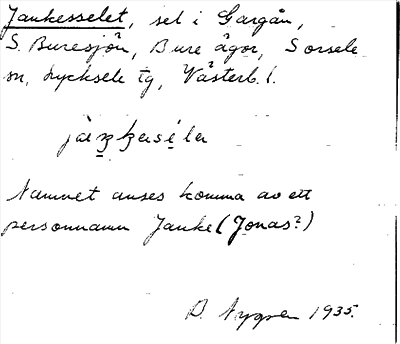 Jankesselet, sel i Gargån,
S. Buresjön, Bure ägor, Sorsele
sn, Lycksele tg, Västerb. l.
Namnet anses komma av ett
personnamn Janke (Jonas?)
D. Nygren 1935.